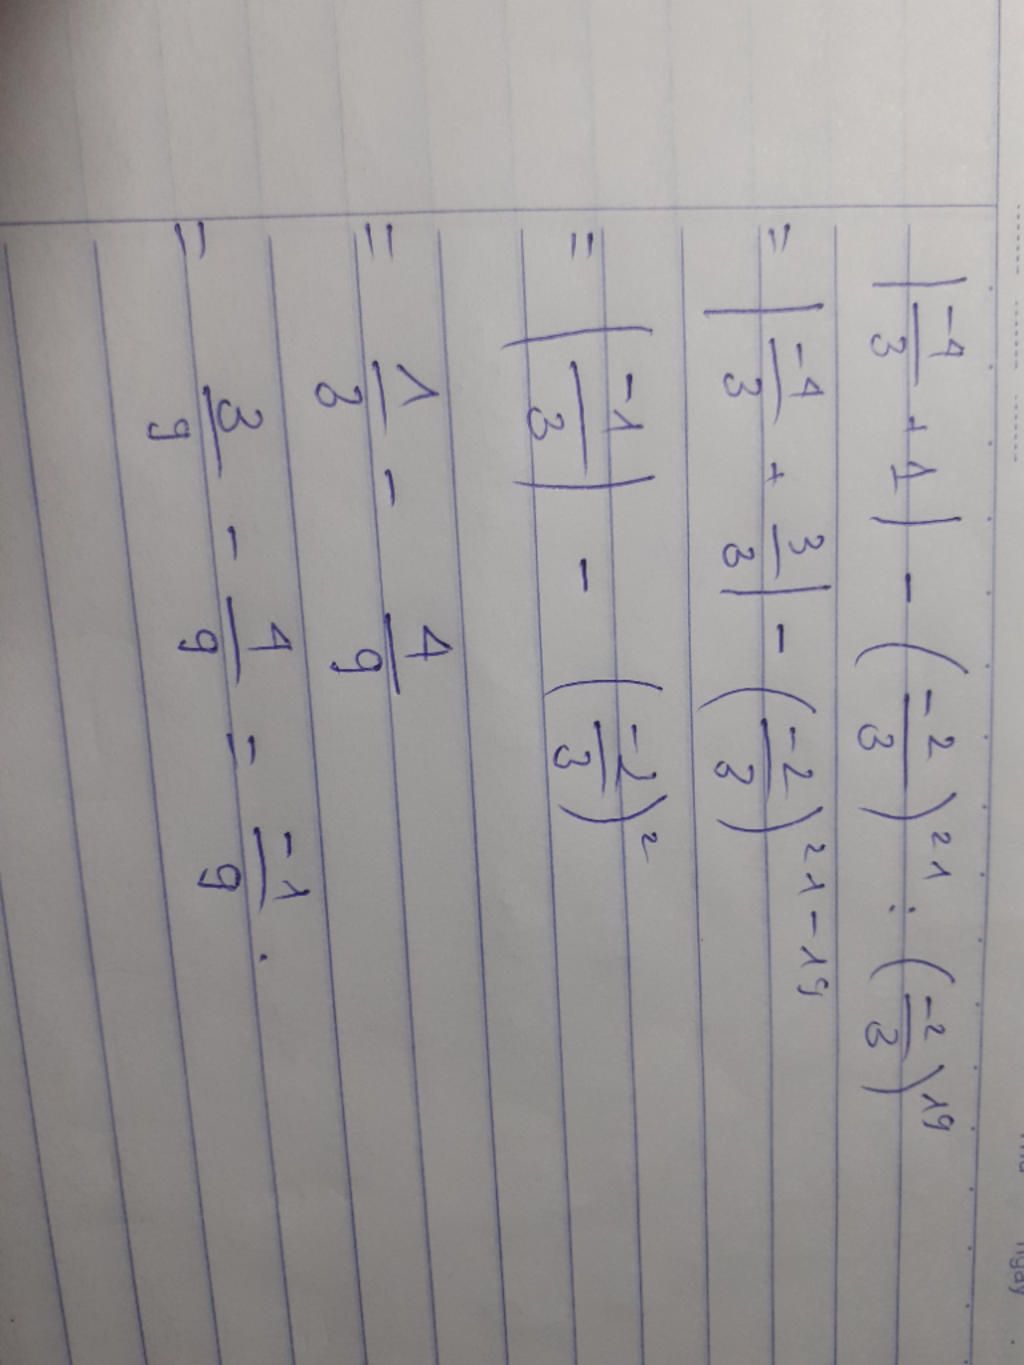 |-4/3 + 1| - (-2/3)^21 : (-2/3)^19
= |-4/3 + 3/3| - (-2/3)^21-19
= |-1/3| - (-2/3)^2
= 1/3 - 4/9
= 3/9 - 4/9 = -1/9.
ngày